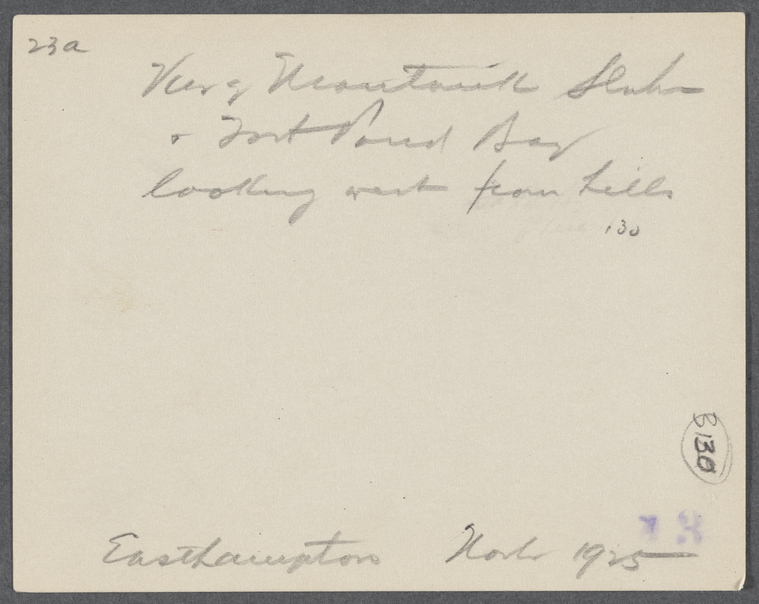 23a
View of Montauk Station
& Fort Pond Bay
looking west from hills
130
B130
Easthampton Nov 1925